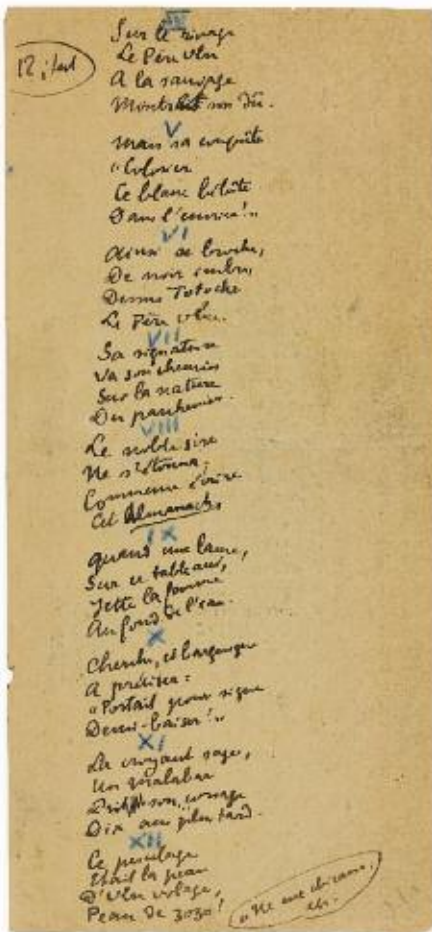 IV
Sur le rivage
Le Père Ubu
12, suit
A la sauvage
Montrait son dû.
V
Mais sa conquête
"Colorier
Ce blanc bébête
Dans l'encrier!"
VI
Ainsi se broche,
De noir imbu,
Dessus Totoche
Le Père Ubu.
VII
Sa signature
Va son chemin
Sur la nature
Du parchemin.
VIII
Le noble sire
Ne s'étonna;
Commence écrire
Cet Almanach,
IX
Quand une lame,
Sur ce tableau,
Jette la femme
Au fond de l'eau.
X
Cherche, et
A préciser:
"Portait pour signe
Demi-baiser!"
XI
La croyant sage,
Un malabar
son usage
Dix ans plus tard.
XII
Ce
Était la peau
D'Ubu volage,
Peau de zozo!
"Ne me chicane,
etc.